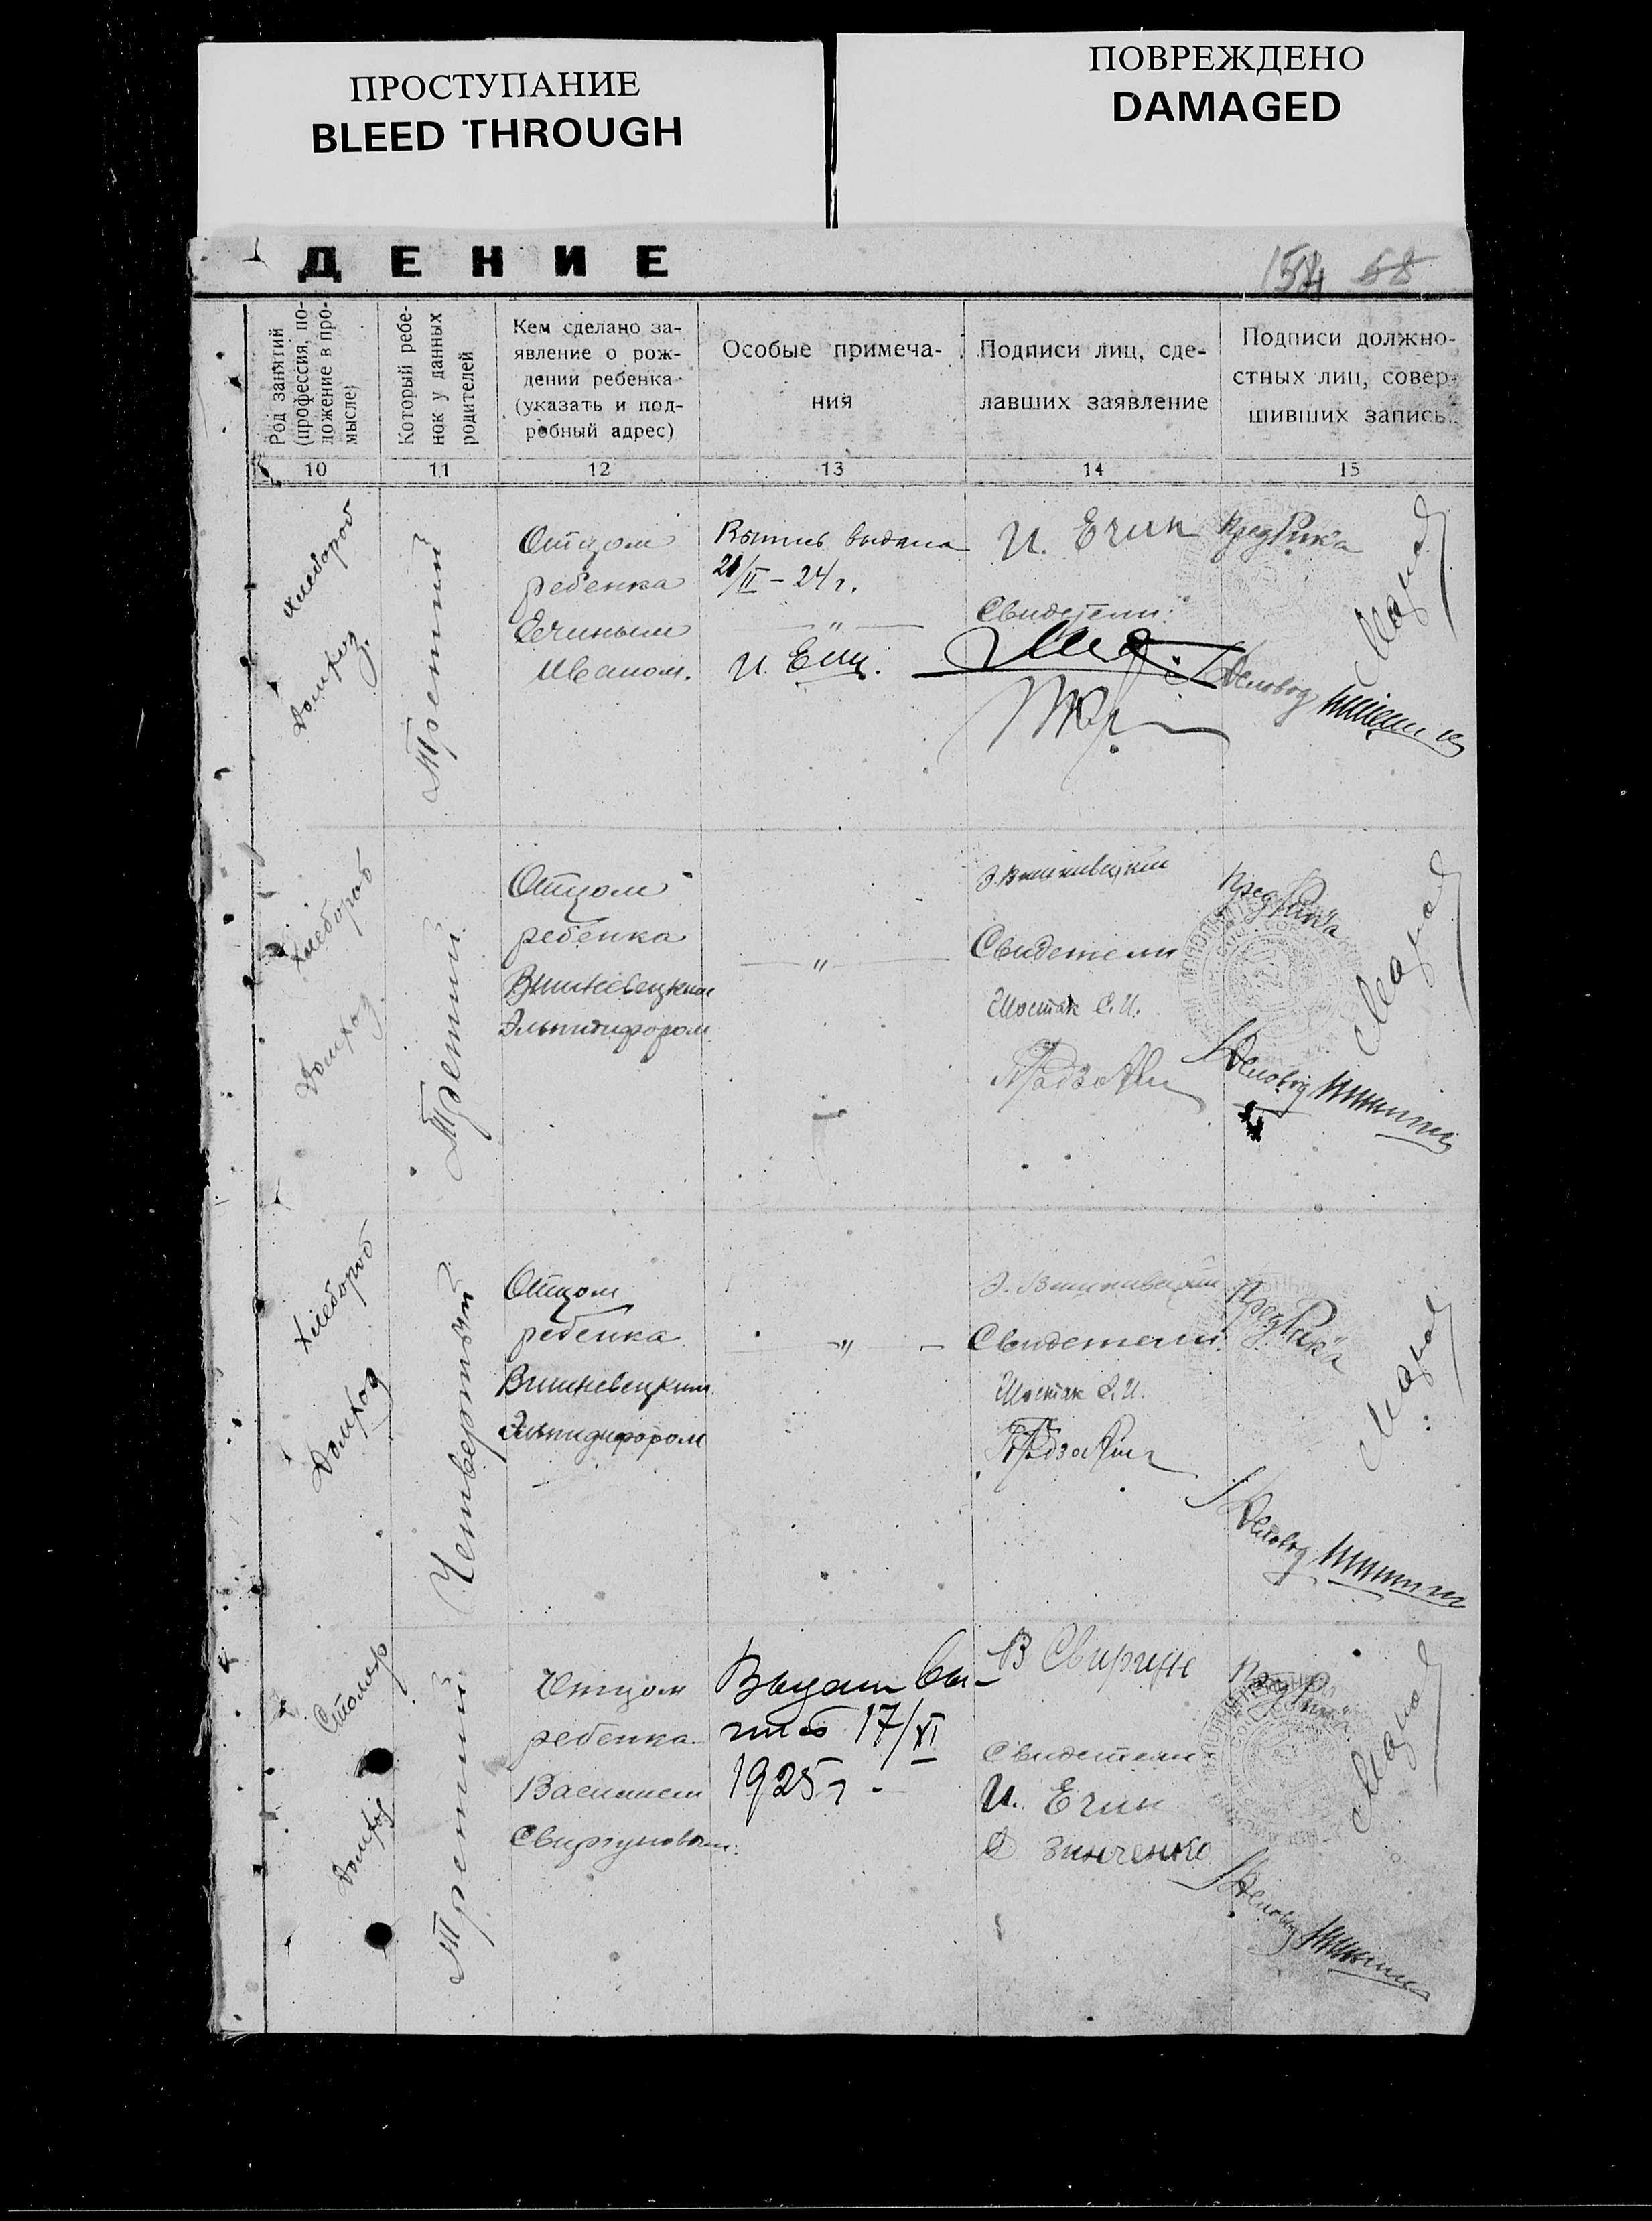 ПРОСТУПАНИЕ
BLEED THROUGH
ПОВРЕЖДЕНО
DAMAGED
ДЕНИЕ
154 68
Род занятий
(профессия, по-
ложение в про-
мысле)
Который ребе-
нок у данных
родителей
Кем сделано за-
явление о рож-
дении ребенка
(указать и под-
робный адрес)
Особые примеча-
ния
Подписи лиц, сде-
лавших заявление
Подписи должно-
стных лиц, совер-
шивших запись.
10 11 12 13 14 15
Хлебороб
Домхоз.
Третий
Отцом
ребенка
Ечиным
Иваном.
Выпись выдана
21/II – 24 г.
— " —
И. Ечин.
И. Ечин
Свидетели:
ПредРик'а
Деловод
Хлебороб
Домхоз
Третий
Отцом
ребенка
Вишневецким
Эльпидифором
— " —
Э. Вишневецкий
Свидетели
Шостак С. И.
ПредРик'а
Деловод
Хлебороб
Домхоз
Четвертый
Отцом
ребенка
Вишневецким
Эльпидифором
— " —
Э. Вишневецкий
Свидетели:
Шостак С. И.
ПредРик'а
Деловод
Столяр
Домхоз
Третий
Отцом
ребенка
Василием
Свиргуновым.
Выдан вы-
пись 17/XI
1925 г.
В Свиргун
Свидетели
И. Ечин
Зинченко
Деловод